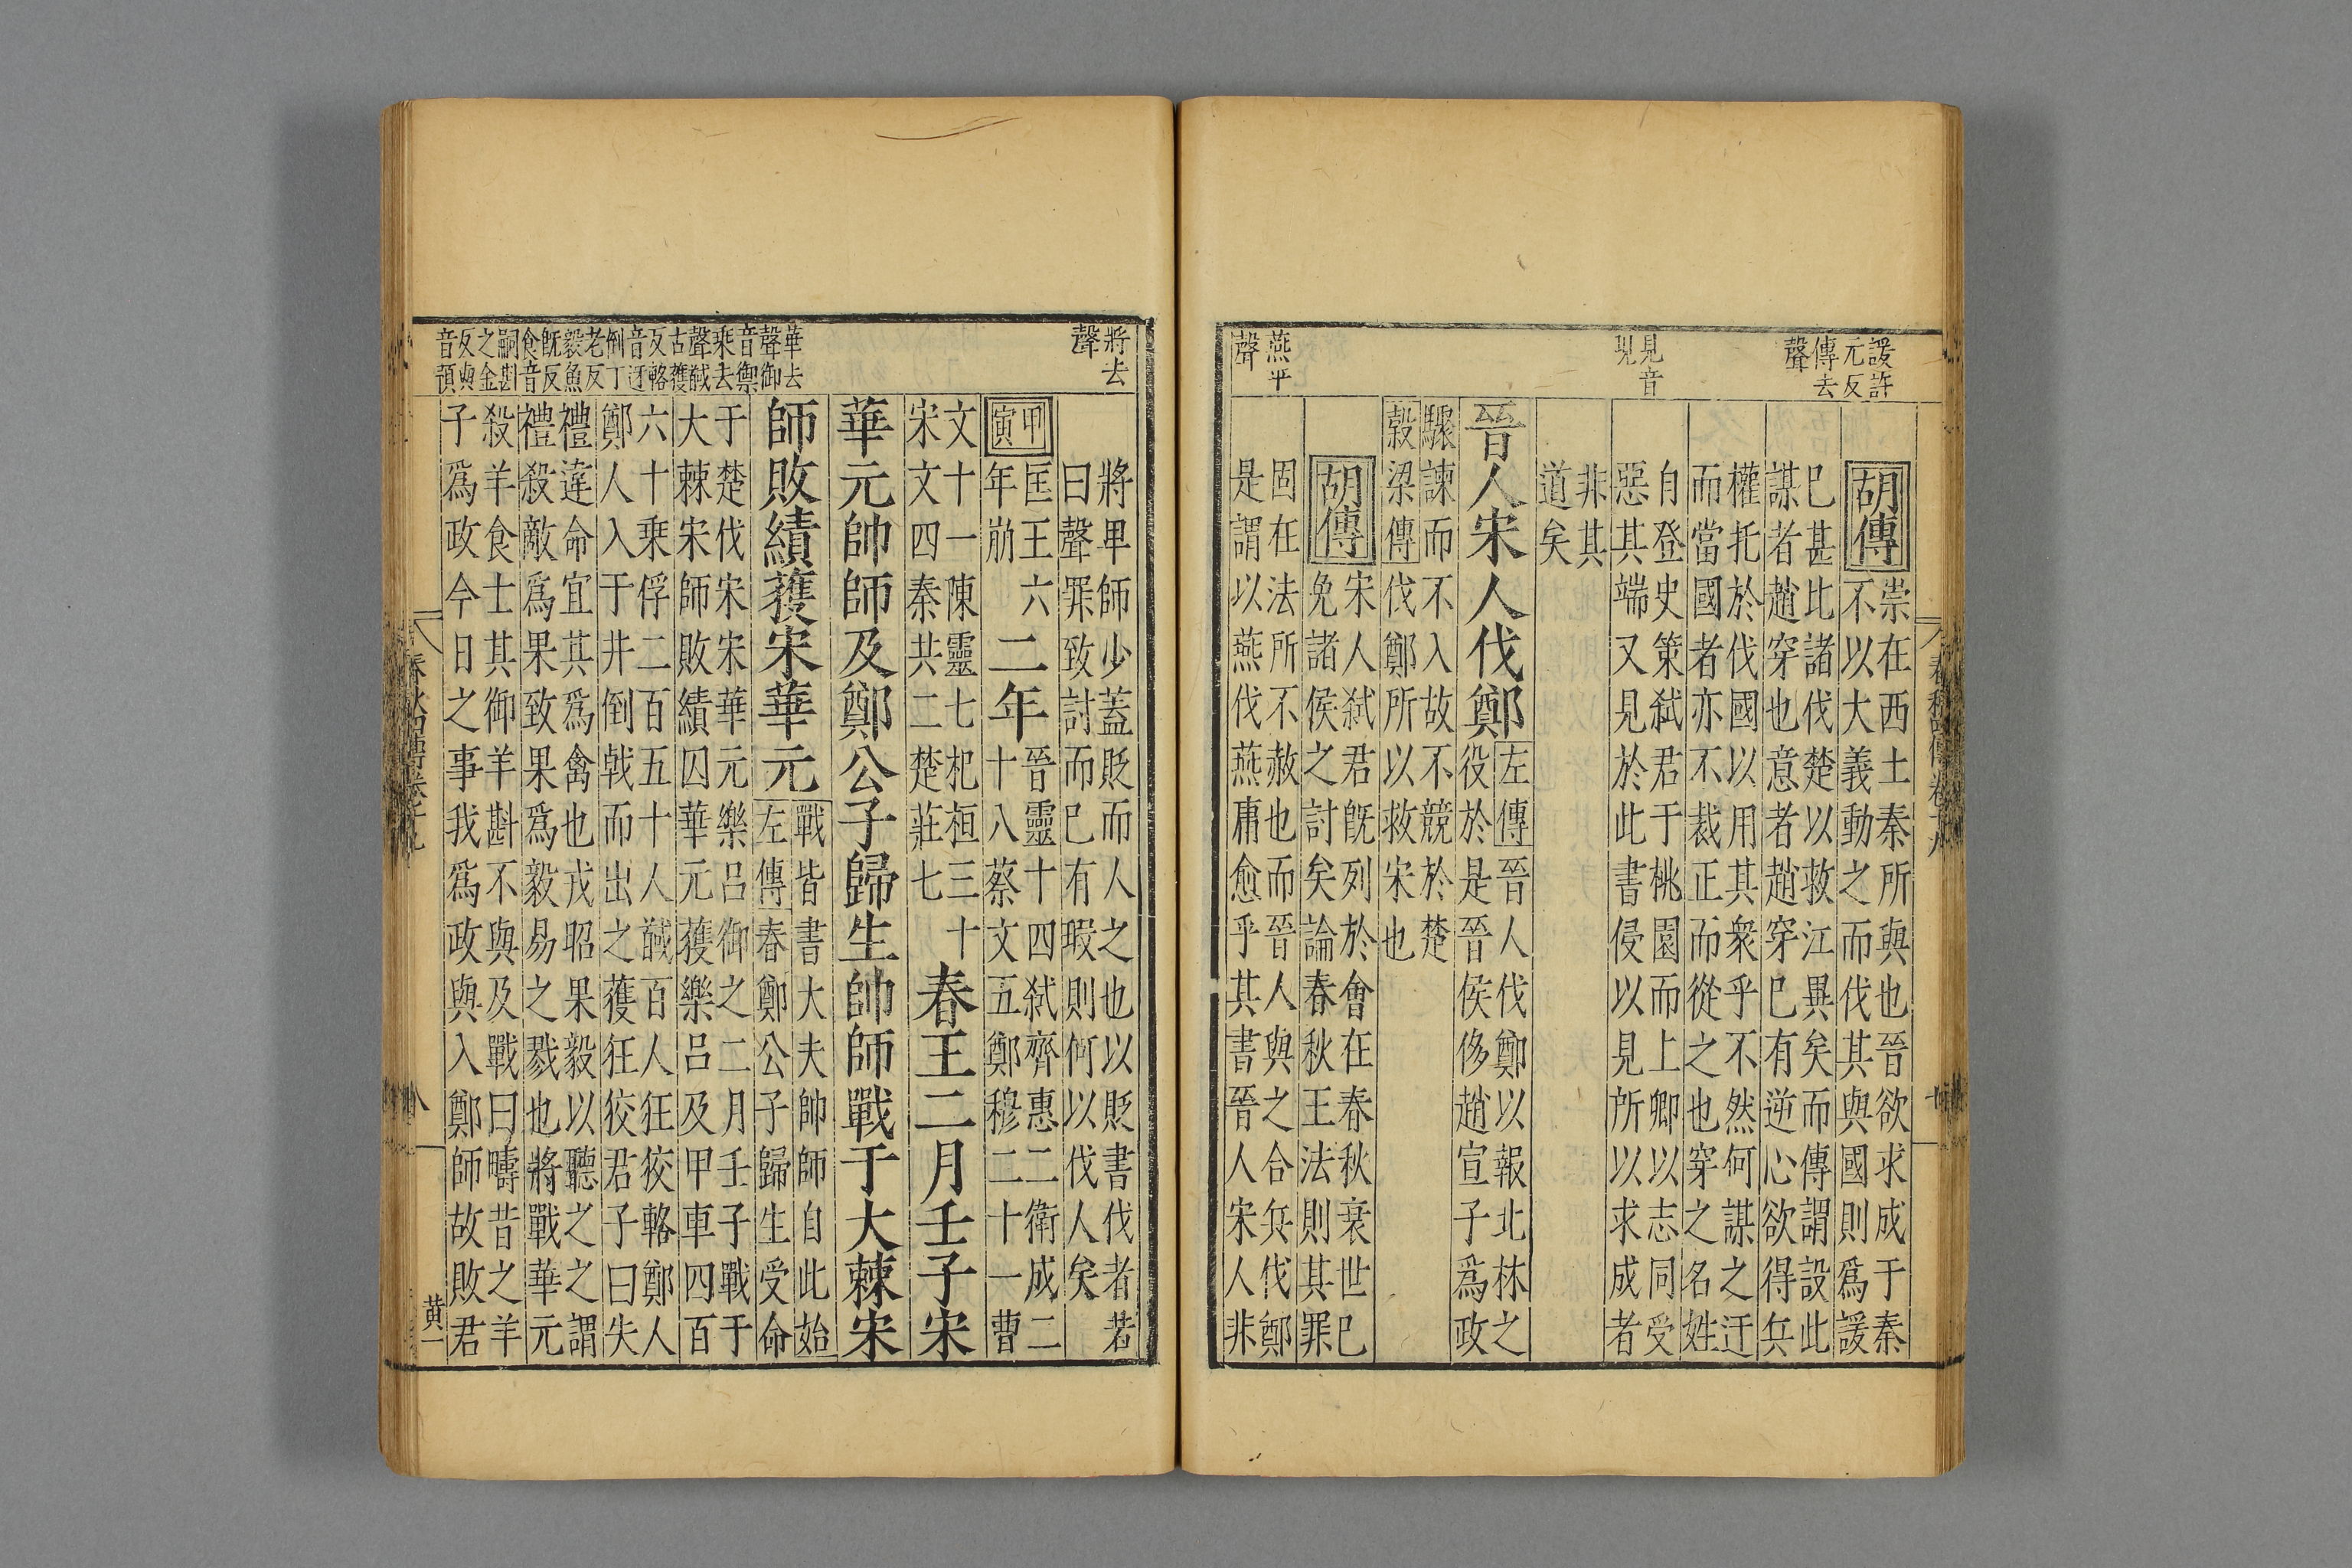 諼許
元反
傳去
聲
見音
現
燕平
聲
胡傳
崇在西土秦所與也晉欲求成于秦
不以大義動之而伐其與國則爲諼
已甚比諸伐楚以救江異矣而傳謂設此
謀者趙穿也意者趙穿已有逆心欲得兵
權托於伐國以用其衆乎不然何謀之迂
而當國者亦不裁正而從之也穿之名姓
自登史策弑君于桃園而上卿以志同受
惡其端又見於此書侵以見所以求成者
非其
道矣
晉人宋人伐鄭
左傳晉人伐鄭以報北林之
役於是晉侯侈趙宣子爲政
驟諫而不入故不競於楚
穀梁傳伐鄭所以救宋也
胡傳
宋人弑君旣列於會在春秋衰世已
免諸侯之討矣論春秋王法則其罪
固在法所不赦也而晉人與之合兵伐鄭
是謂以燕伐燕庸愈乎其書晉人宋人非
春秋四傳卷十九
將去
聲
華去
聲御
音禦
乘去
聲馘
古獲
反輅
音迓
倒丁
老反
毅魚
旣反
食音
嗣斟
之金
反與
音預
將卑師少蓋貶而人之也以貶書伐者若
曰聲罪致討而已有瑕則何以伐人矣
甲寅
匡王六
年崩
二年
晉靈十四弑齊惠二衛成二
十八蔡文五鄭穆二十一曹
文十一陳靈七杞桓三十
宋文四秦共二楚莊七
春王二月壬子宋
華元帥師及鄭公子歸生帥師戰于大棘宋
師敗績獲宋華元
戰皆書大夫帥師自此始
左傳春鄭公子歸生受命
于楚伐宋宋華元樂呂御之二月壬子戰于
大棘宋師敗績囚華元獲樂呂及甲車四百
六十乘俘二百五十人馘百人狂狡輅鄭人
鄭人入于井倒戟而出之獲狂狡君子曰失
禮違命宜其爲禽也戎昭果毅以聽之之謂
禮殺敵爲果致果爲毅易之戮也將戰華元
殺羊食士其御羊斟不與及戰曰疇昔之羊
子爲政今日之事我爲政與入鄭師故敗君
春秋四傳卷十九
黃一